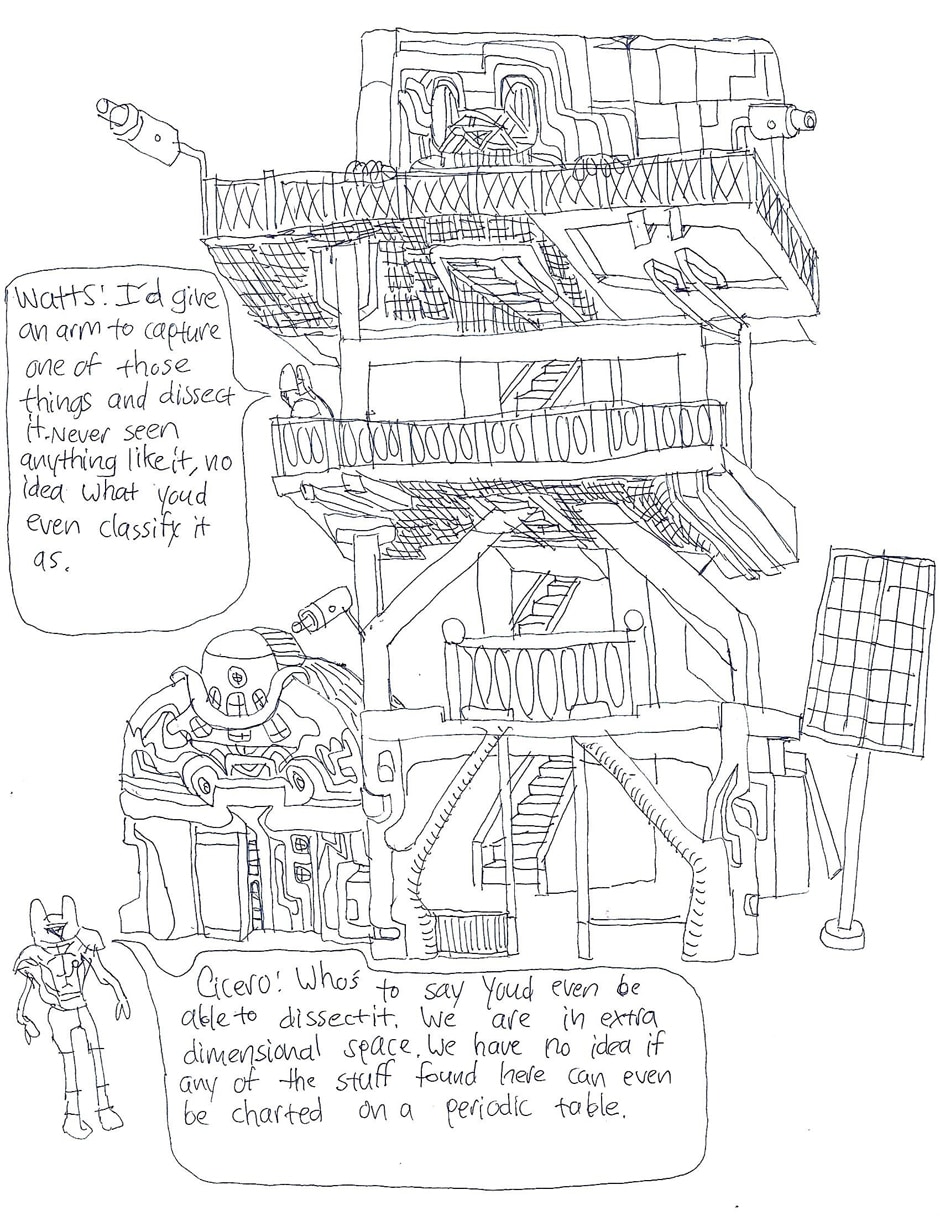 Watts! I'd give
an arm to capture
one of those
things and dissect
it. Never seen
anything like it, no
idea what youd
even classify it
as.
Cicero! Who's to say youd even be
able to dissect it. We are in extra
dimensional space. We have no idea if
any of the stuff found here can even
be charted on a periodic table.